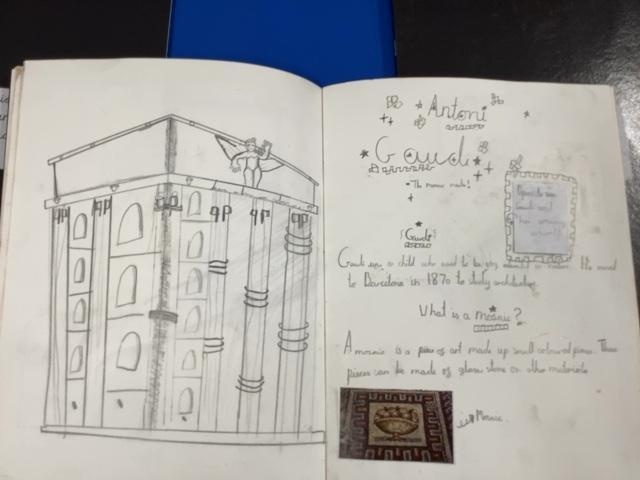 Antoni
Gaudi
• The mosaic made!
Gaudi
Gaudi was a child who used to be very interested in nature. He moved
to Barcelona in 1870 to study architecture.
What is a mosaic?
A mosaic is a piece of art made up small coloured pieces. These
pieces can be made of glass stone on other materials
Mosaic.